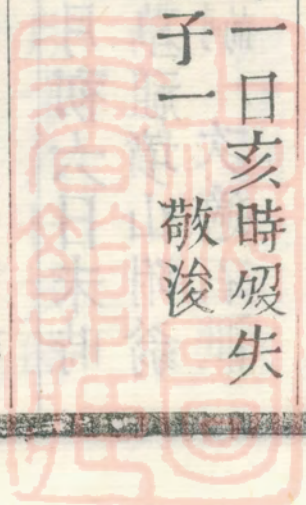 一日亥時歿失
子一　敬浚